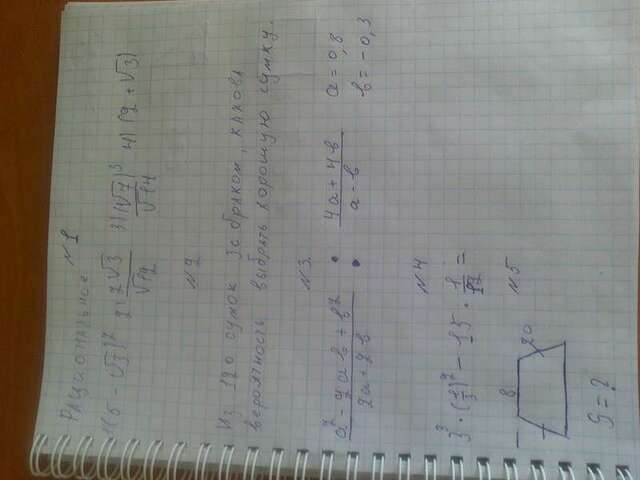 №1
Рациональное
1)(5 - √3)² 2) 2√3/√12 3) (√7)³/√14 4) (2 + √3)
№2
Из 120 сумок 3 с браком, какова
вероятность выбрать хорошую сумку.
№3.
a² - 2ab + b² / 2a + 2b : 4a + 4b / a - b a = 0,8
b = -0,3
№4
3³ · (1/3)² - 15 · 1/12 =
№5
8
20
S = ?